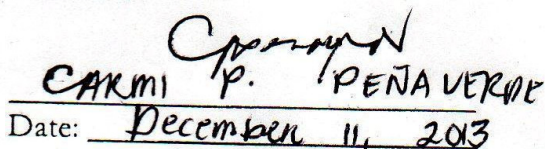 CARMI P. PEÑAVERDE
Date: December 11, 2013